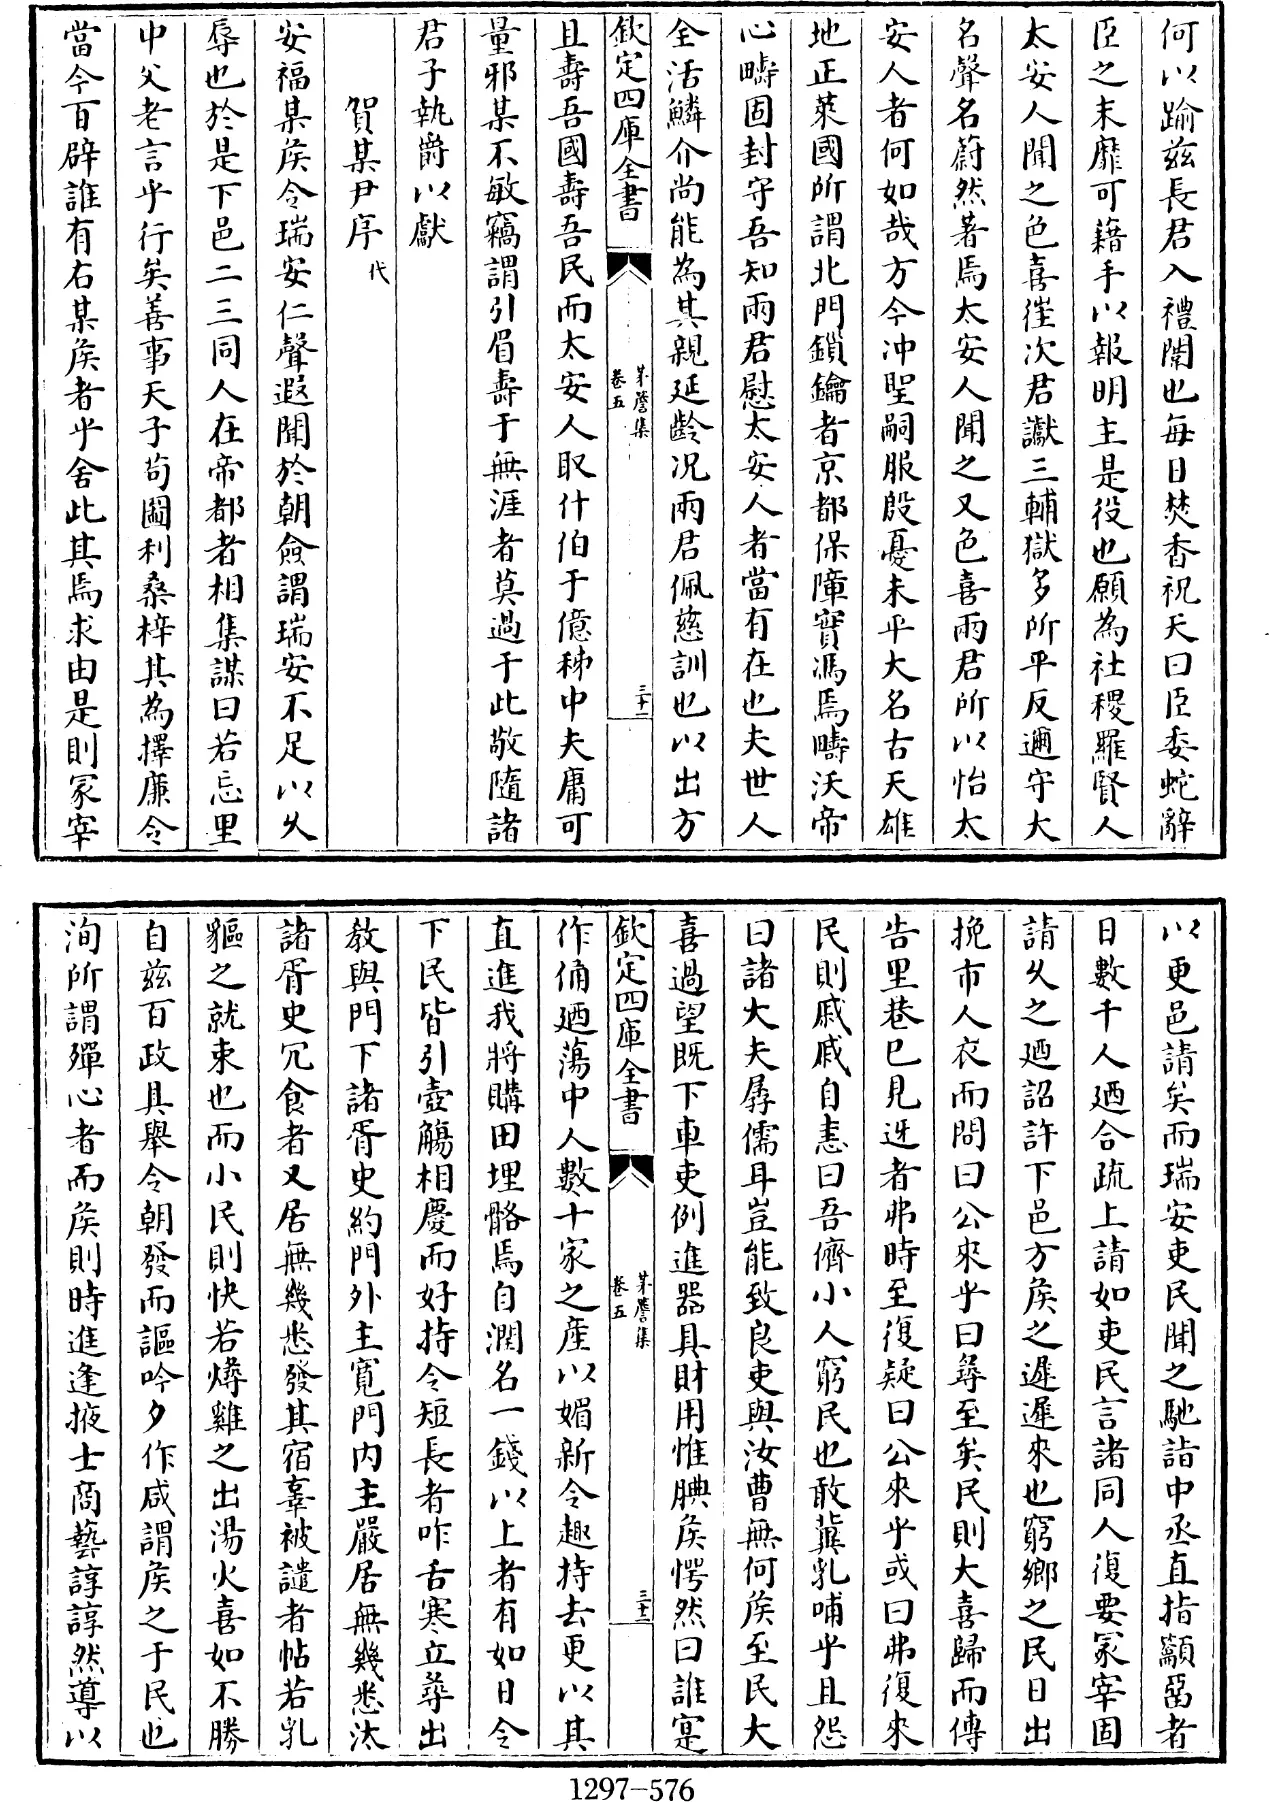 何以踰兹長君入禮闈也每日焚香祝天曰臣委蛇辭
臣之末靡可藉手以報明主是役也願為社稷羅賢人
太安人聞之色喜徃次君讞三輔獄多所平反邇守大
名聲名蔚然著焉太安人聞之又色喜兩君所以怡太
安人者何如哉方今冲聖嗣服殷憂未平大名古天雄
地正萊國所謂北門鎖鑰者京都保障寔馮焉疇沃帝
心疇固封守吾知兩君慰太安人者當有在也夫世人
全活鱗介尚能為其親延齡况兩君佩慈訓也以出方
欽定四庫全書
茅簷集
卷五
三十一
且壽吾國壽吾民而太安人取什伯于億秭中夫庸可
量邪某不敏竊謂引眉壽于無涯者莫過于此敬隨諸
君子執爵以獻
賀某尹序代
安福某侯令瑞安仁聲遐聞於朝僉謂瑞安不足以久
辱也於是下邑二三同人在帝都者相集謀曰若忘里
中父老言乎行矣善事天子苟圖利桑梓其為擇廉令
當今百辟誰有右某侯者乎舍此其焉求由是則冢宰
以更邑請矣而瑞安吏民聞之馳詣中丞直指籲畱者
日數千人廼合疏上請如吏民言諸同人復要冢宰固
請久之廼詔許下邑方侯之遲遲來也窮鄉之民日出
挽市人衣而問曰公來乎曰尋至矣民則大喜歸而傳
告里巷已見迓者弗時至復疑曰公來乎或曰弗復來
民則戚戚自恚曰吾儕小人窮民也敢兾乳哺乎且怨
曰諸大夫孱儒耳豈能致良吏與汝曹無何侯至民大
喜過望既下車吏例進器具財用惟腆侯愕然曰誰寔
欽定四庫全書
茅簷集
卷五
三十二
作俑廼蕩中人數十家之産以媚新令趣持去更以其
直進我將購田埋骼焉自潤名一錢以上者有如日令
下民皆引壺觴相慶而好持令短長者咋舌寒立尋出
教與門下諸胥史約門外主寛門内主嚴居無幾悉汰
諸胥史冗食者又居無幾悉發其宿辜被譴者帖若乳
貙之就束也而小民則快若燖雞之出湯火喜如不勝
自兹百政具舉令朝發而謳吟夕作咸謂侯之于民也
洵所謂殫心者而侯則時進逢掖士商藝諄諄然導以
1297-576